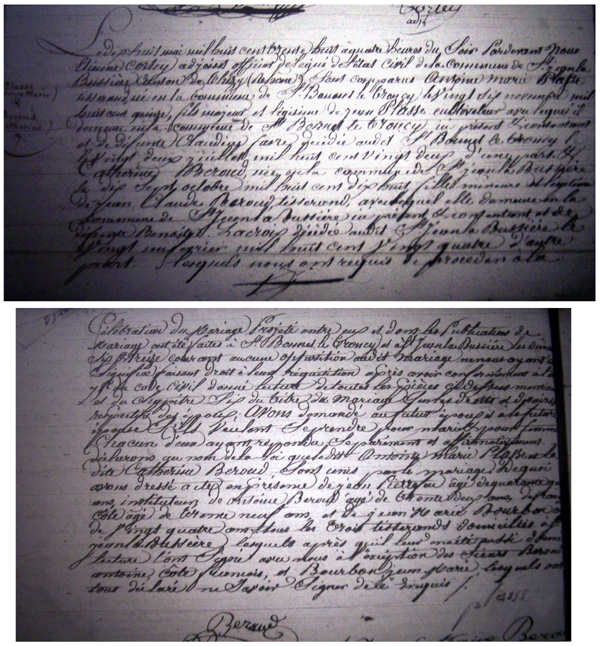 Le dix huit mai mil huit cent trente huit à quatre heures du Soir Pardevant nous
adjoint officier de l'état Civil de la Commune de St Jean la
Bussière Canton de Thizy (Rhône) Sont comparus Antoine Marie Plasse
en la commune de St Bonnet le Troncy le vingt six novembre mil
huit cent quinze, fils majeur et légitime de Jean Plasse cultivateur avec lequel il
demeure en la Commune de St Bonnet le Troncy ici présent et consentant
et de défunte Claudine décédée audit St Bonnet le Troncy le
vingt deux juillet mil huit cent vingt deux d'une part. Et
Catherine Beroud, née en la commune de St Jean la Bussière
le dix Sept octobre mil huit cent dix huit fille mineure et légitime
de Jean Claude Beroud tisserand, avec lequel elle demeure en la
Commune de St Jean la Bussière ici présent et consentant et de
défunte Benoite Lacroix décédée audit St Jean la Bussière le
vingt un février mil huit cent vingt quatre d'autre
part. lesquels nous ont requis de procéder à la
Célébration du Mariage Projeté entre eux et dont les Publications de
Mariage ont été faites à St Bonnet le Troncy et à St Jean la Bussière les
Six & treize courant aucune opposition audit mariage ne nous ayant été
Signifiée faisant droit à leur réquisition après avoir conformément à
du Code civil donné lecture de toutes les Pièces ci dessus
et du chapitre Six du titre du Mariage Sur les droits et devoirs
respectifs des époux, Avons demandé au futur époux et à la future
épouse S'ils veulent Se prendre pour mari et pour femme
Chacun d'eux ayant répondu Séparément et affirmativement
déclarons au nom de la loi que ledit Antoine Marie Plasse et la
dite Catherine Beroud Sont unis par le mariage De quoi
avons dressé acte en présence de Jean Pierre âgé de quarante
ans, instituteur de Antoine Beroud âgé de trente deux ans, de
Cote âgé de trente neuf ans et de Jean Marie Bourbon
de Vingt quatre ans tous les trois tisserands domiciliés à St
Jean la Bussière, lesquels après qu'il leur en a été aussi donné
lecture l'ont Signé avec nous à l'exception des Sieurs Beroud
antoine, Cote francois, et Bourbon Jean Marie lesquels ont
tous déclaré ne Savoir Signer de ce enquis
Beroud